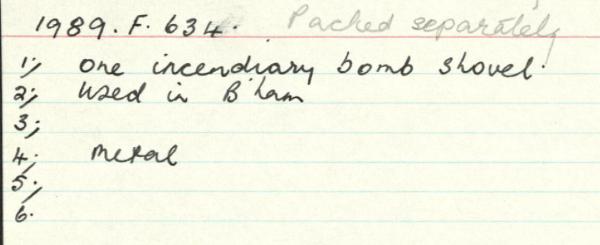 1989. F. 634. Packed separately
1; One incendiary bomb shovel.
2; Used in B'ham
3;
4; Metal
5;
6.